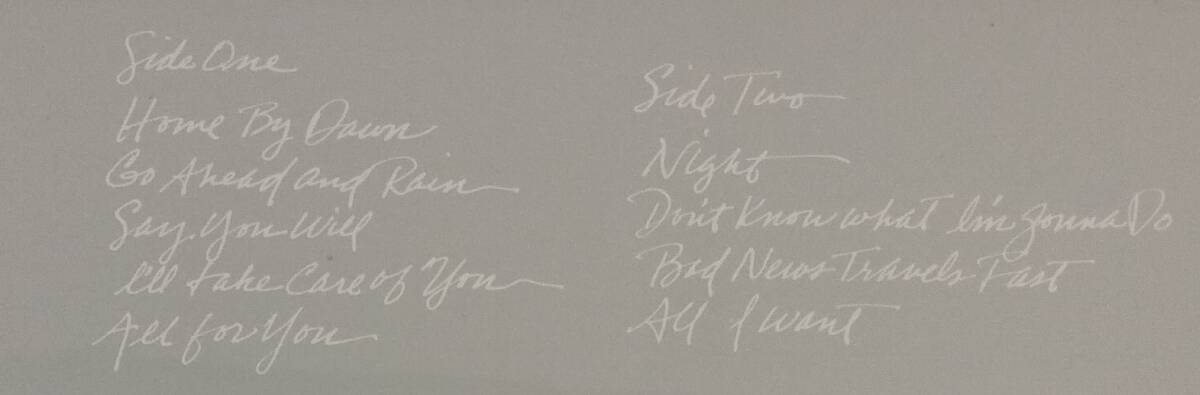 Side One
Home By Dawn
Go Ahead and Rain
Say You Will
I'll take Care of You
All for You
Side Two
Night
Don't Know what I'm gonna Do
Bad News Travels Fast
All I want